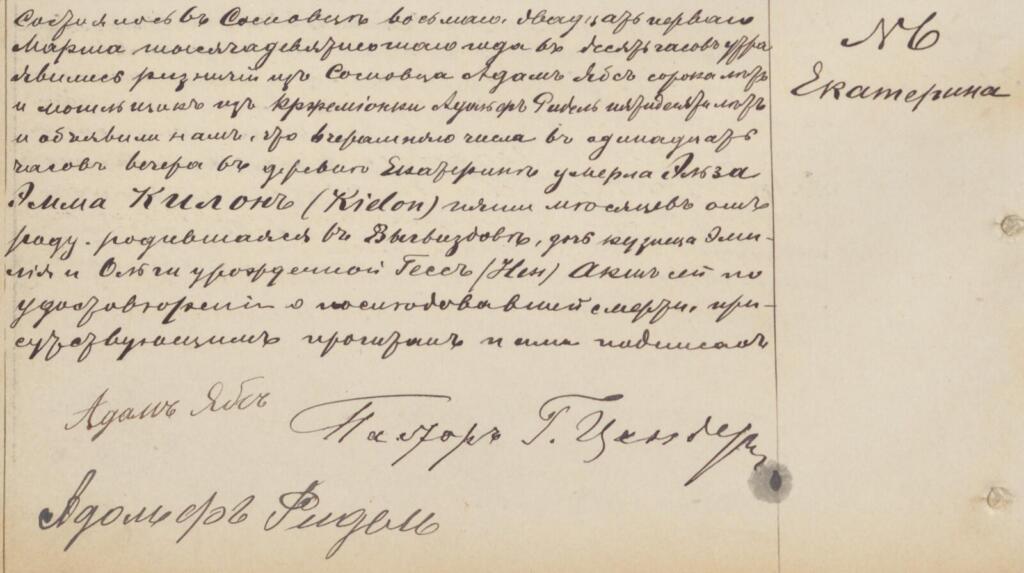 Состоялось въ Сосновцѣ восьмаго, двадцать перваго
Марта тысяча девятисотаго года въ десять часовъ утра
явились ризничій изъ Сосновца Адамъ Ябсъ сорока лѣтъ
и могильщикъ изъ Кржеміонки Адольфъ Ридель пятидесяти лѣтъ
и объявили намъ, что вчерашняго числа въ одинадцать
часовъ вечера въ деревнѣ Екатеринѣ умерла Эльза
Эмма Килонъ (Kielon) пяти мѣсяцевъ отъ
роду. родившаяся въ, дочь кузнеца Эми-
лія и Ольги урожденной Гессъ (Hess) Актъ сей по
удостовѣреніи о послѣдовавшей смерти, при-
сутствующимъ прочтанъ и нами подписанъ
Адамъ Ябсъ
Пасторъ Г. Цендеръ
Адольфъ Ридель
№ 6
Екатерина